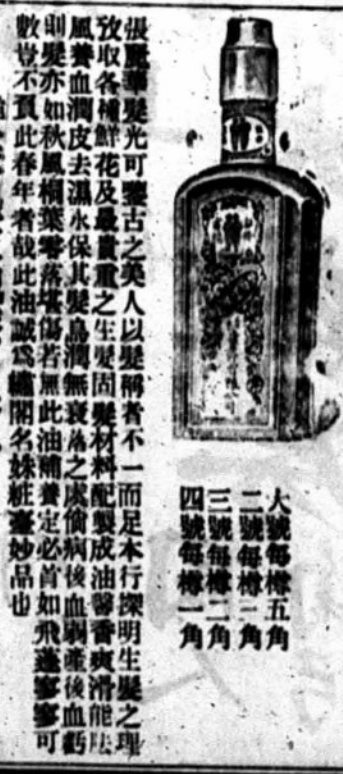 大號每樽五角
二號每樽三角
三號每樽二角
四號每樽一角
張麗華髮光可鑒古之美人以髮稱者不一而足本行深明生髮之理
攷取各種鮮花及最貴重之生髮固髮材料配製成油馨香爽滑能祛
風養血潤皮去濕水保其髮烏潤無衰落之處倘病後血弱產後血虧
則髮亦如秋風桐葉零落堪傷若無此油補養定必首如飛蓬寥寥可
數豈不負此春年者哉此油誠為繡閣名姝粧臺妙品也